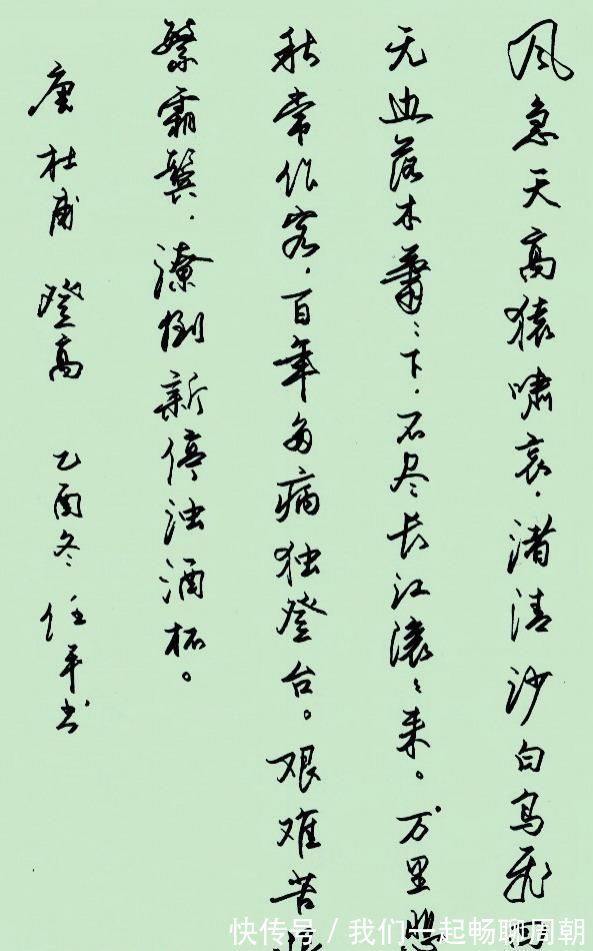 风急天高猿啸哀，渚清沙白鸟飞
无边落木萧々下，不尽长江滚々来。万里悲
秋常作客，百年多病独登台。艰难苦
繁霜鬓，潦倒新停浊酒杯。
唐杜甫 登高 乙酉冬 任平书
快传号 / 我们一起畅聊周朝